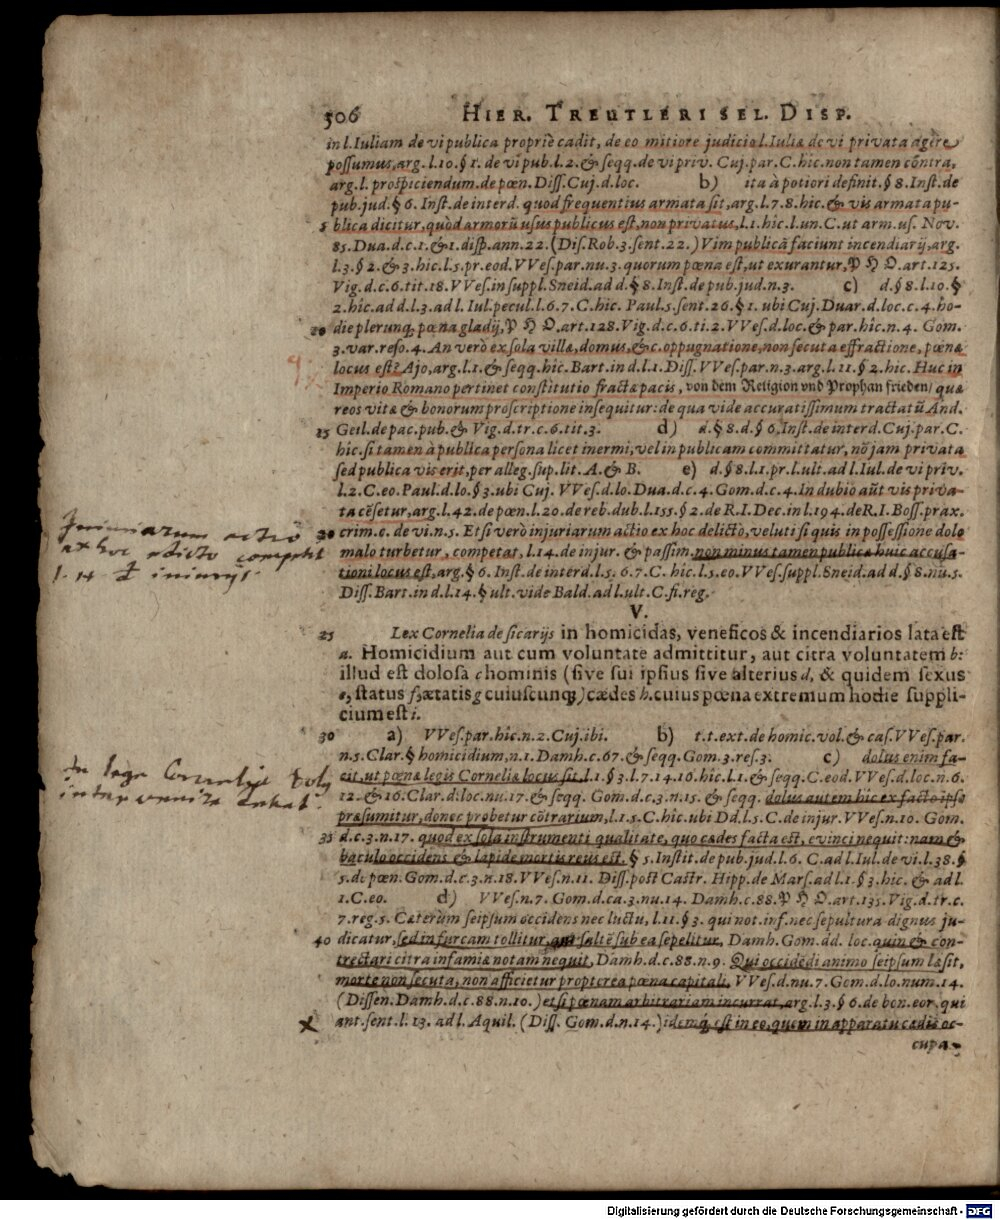 506 HIER. TREUTLERI SEL. DISP.
in l. Iuliam de vi publica propriè cadit, de eo mitiore judicio l. Iuliæ de vi privata agere
possumus, arg. l. 10. § 1. de vi pub. l. 2. & seqq. de vi priv. Cuj. par. C. hic. non tamen cõtra,
arg. l. prospiciendum. de pœn. Diss. Cuj. d. loc. b) ita à potiori definit. § 8. Inst. de
pub. jud. § 6. Inst. de interd. quod frequentius armata sit, arg. l. 7. 8. hic. & vis armata pu-
5 blica dicitur, quòd armorũ usus publicus est, non privatus, l. 1. hic. l. un. C. ut arm. us. Nov.
85. Dua. d. c. 1. & 1. disp. ann. 22. (Dis. Rob. 3. sent. 22.) Vim publicã faciunt incendiarij, arg.
l. 3. § 2. & 3. hic. l. 5. pr. eod. VVes. par. nu. 3. quorum pœna est, ut exurantur, P H O. art. 125.
Vig. d. c. 6. tit. 18. VVes. in suppl. Sneid. ad d. § 8. Inst. de pub. jud. n. 3. c) d. § 8. l. 10. §
2. hic. ad d. l. 3. ad l. Iul. pecul. l. 6. 7. C. hic. Paul. 5. sent. 26. § 1. ubi Cuj. Duar. d. loc. c. 4. ho-
10 die plerunq; pœna gladij, P H O. art. 128. Vig. d. c. 6. ti. 2. VVes. d. loc. & par. hic. n. 4. Gom.
3. var. reso. 4. An verò ex sola villæ, domus, &c. oppugnatione, non secuta effractione, pœnæ
locus est? Ajo, arg. l. 1. & seqq. hic. Bart. in d. l. 1. Diss. VVes. par. n. 3. arg. l. 11. § 2. hic. Huc in
Imperio Romano pertinet constitutio fractæ pacis, von dem Religion vnd Prophan frieden/ quæ
reos vitæ & bonorum proscriptione insequitur: de qua vide accuratissimum tractatũ And.
15 Geil. de pac. pub. & Vig. d. tr. c. 6. tit. 3. d) d. § 8. d. § 6. Inst. de interd. Cuj. par. C.
hic. si tamen à publica persona licet inermi, vel in publicam committatur, nõ jam privata
sed publica vis erit, per alleg. sup. lit. A. & B. e) d. § 8. l. 1. pr. l. ult. ad l. Iul. de vi priv.
l. 2. C. eo. Paul. d. lo. § 3. ubi Cuj. VVes. d. lo. Dua. d. c. 4. Gom. d. c. 4. In dubio aũt vis priva-
ta cẽsetur, arg. l. 42. de pœn. l. 20. de reb. dub. l. 155. § 2. de R. I. Dec. in l. 194. de R. I. Boss. prax.
20 crim. c. de vi. n. 5. Et si verò injuriarum actio ex hoc delicto, veluti si quis in possessione dolo
malo turbetur, competat, l. 14. de injur. & passim. non minus tamen publicæ huic accusa-
tioni locus est, arg. § 6. Inst. de interd. l. 5. 6. 7. C. hic. l. 5. eo. VVes. suppl. Sneid. ad d. § 8. nu. 5.
Diss. Bart. in d. l. 14. § ult. vide Bald. ad l. ult. C. fi. reg.
Iniuriarum actio
ex hoc competit
l. 14 iniurijs.
V.
25 Lex Cornelia de sicarijs in homicidas, veneficos & incendiarios lata est
a. Homicidium aut cum voluntate admittitur, aut citra voluntatem b:
illud est dolosa c hominis (sive sui ipsius sive alterius d, & quidem sexus
e, status f, ætatis g cuiuscunq;) cædes h. cuius pœna extremum hodie suppli-
cium est i.
30 a) VVes. par. hic. n. 2. Cuj. ibi. b) t. t. ext. de homic. vol. & cas. VVes. par.
n. 5. Clar. § homicidium, n. 1. Damh. c. 67. & seqq. Gom. 3. res. 3. c) dolus enim fa-
cit, ut pœnæ legis Corneliæ locus sit, l. 1. § 3. l. 7. 14. 16. hic. l. 1. & seqq. C. eod. VVes. d. loc. n. 6.
12. & 16. Clar. d. loc. nu. 17. & seqq. Gom. d. c. 3. n. 15. & seqq. dolus autem hic ex facto ipso
præsumitur, donec probetur cõtrarium, l. 1. 5. C. hic. ubi Dd. l. 5. C. de injur. VVes. n. 10. Gom.
35 d. c. 3. n. 17. quod ex sola instrumenti qualitate, quo cædes facta est, evinci nequit: nam &
baculo occidens & lapide mortis reus est. § 5. Instit. de pub. jud. l. 6. C. ad l. Iul. de vi. l. 38. §
5. de pœn. Gom. d. c. 3. n. 18. VVes. n. 11. Diss. post Castr. Hipp. de Mars. ad l. 1. § 3. hic. & ad l.
1. C. eo. d) VVes. n. 7. Gom. d. ca. 3. nu. 14. Damh. c. 88. P H O. art. 135. Vig. d. tr. c.
7. reg. 5. Cæterum seipsum occidens nec luctu, l. 11. § 3. qui not. inf. nec sepultura dignus ju-
40 dicatur, sed in furcam tollitur, aut saltẽ sub ea sepelitur, Damh. Gom. dd. loc. quin & con-
trectari citra infamiæ notam nequit, Damh. d. c. 88. n. 9. Qui occidẽdi animo seipsum læsit,
morte non secuta, non afficietur propterea pœna capitali, VVes. d. nu. 7. Gom. d. lo. num. 14.
(Dissen. Damh. d. c. 88. n. 10.) etsi pœnam arbitrariam incurrat, arg. l. 3. § 6. de bon. eor. qui
ant. sent. l. 13. ad l. Aquil. (Diss. Gom. d. n. 14.) idemq; est in eo, quem in apparatu cædis oc-
cupa-
In lege Cornelia
Digitalisierung gefördert durch die Deutsche Forschungsgemeinschaft - DFG